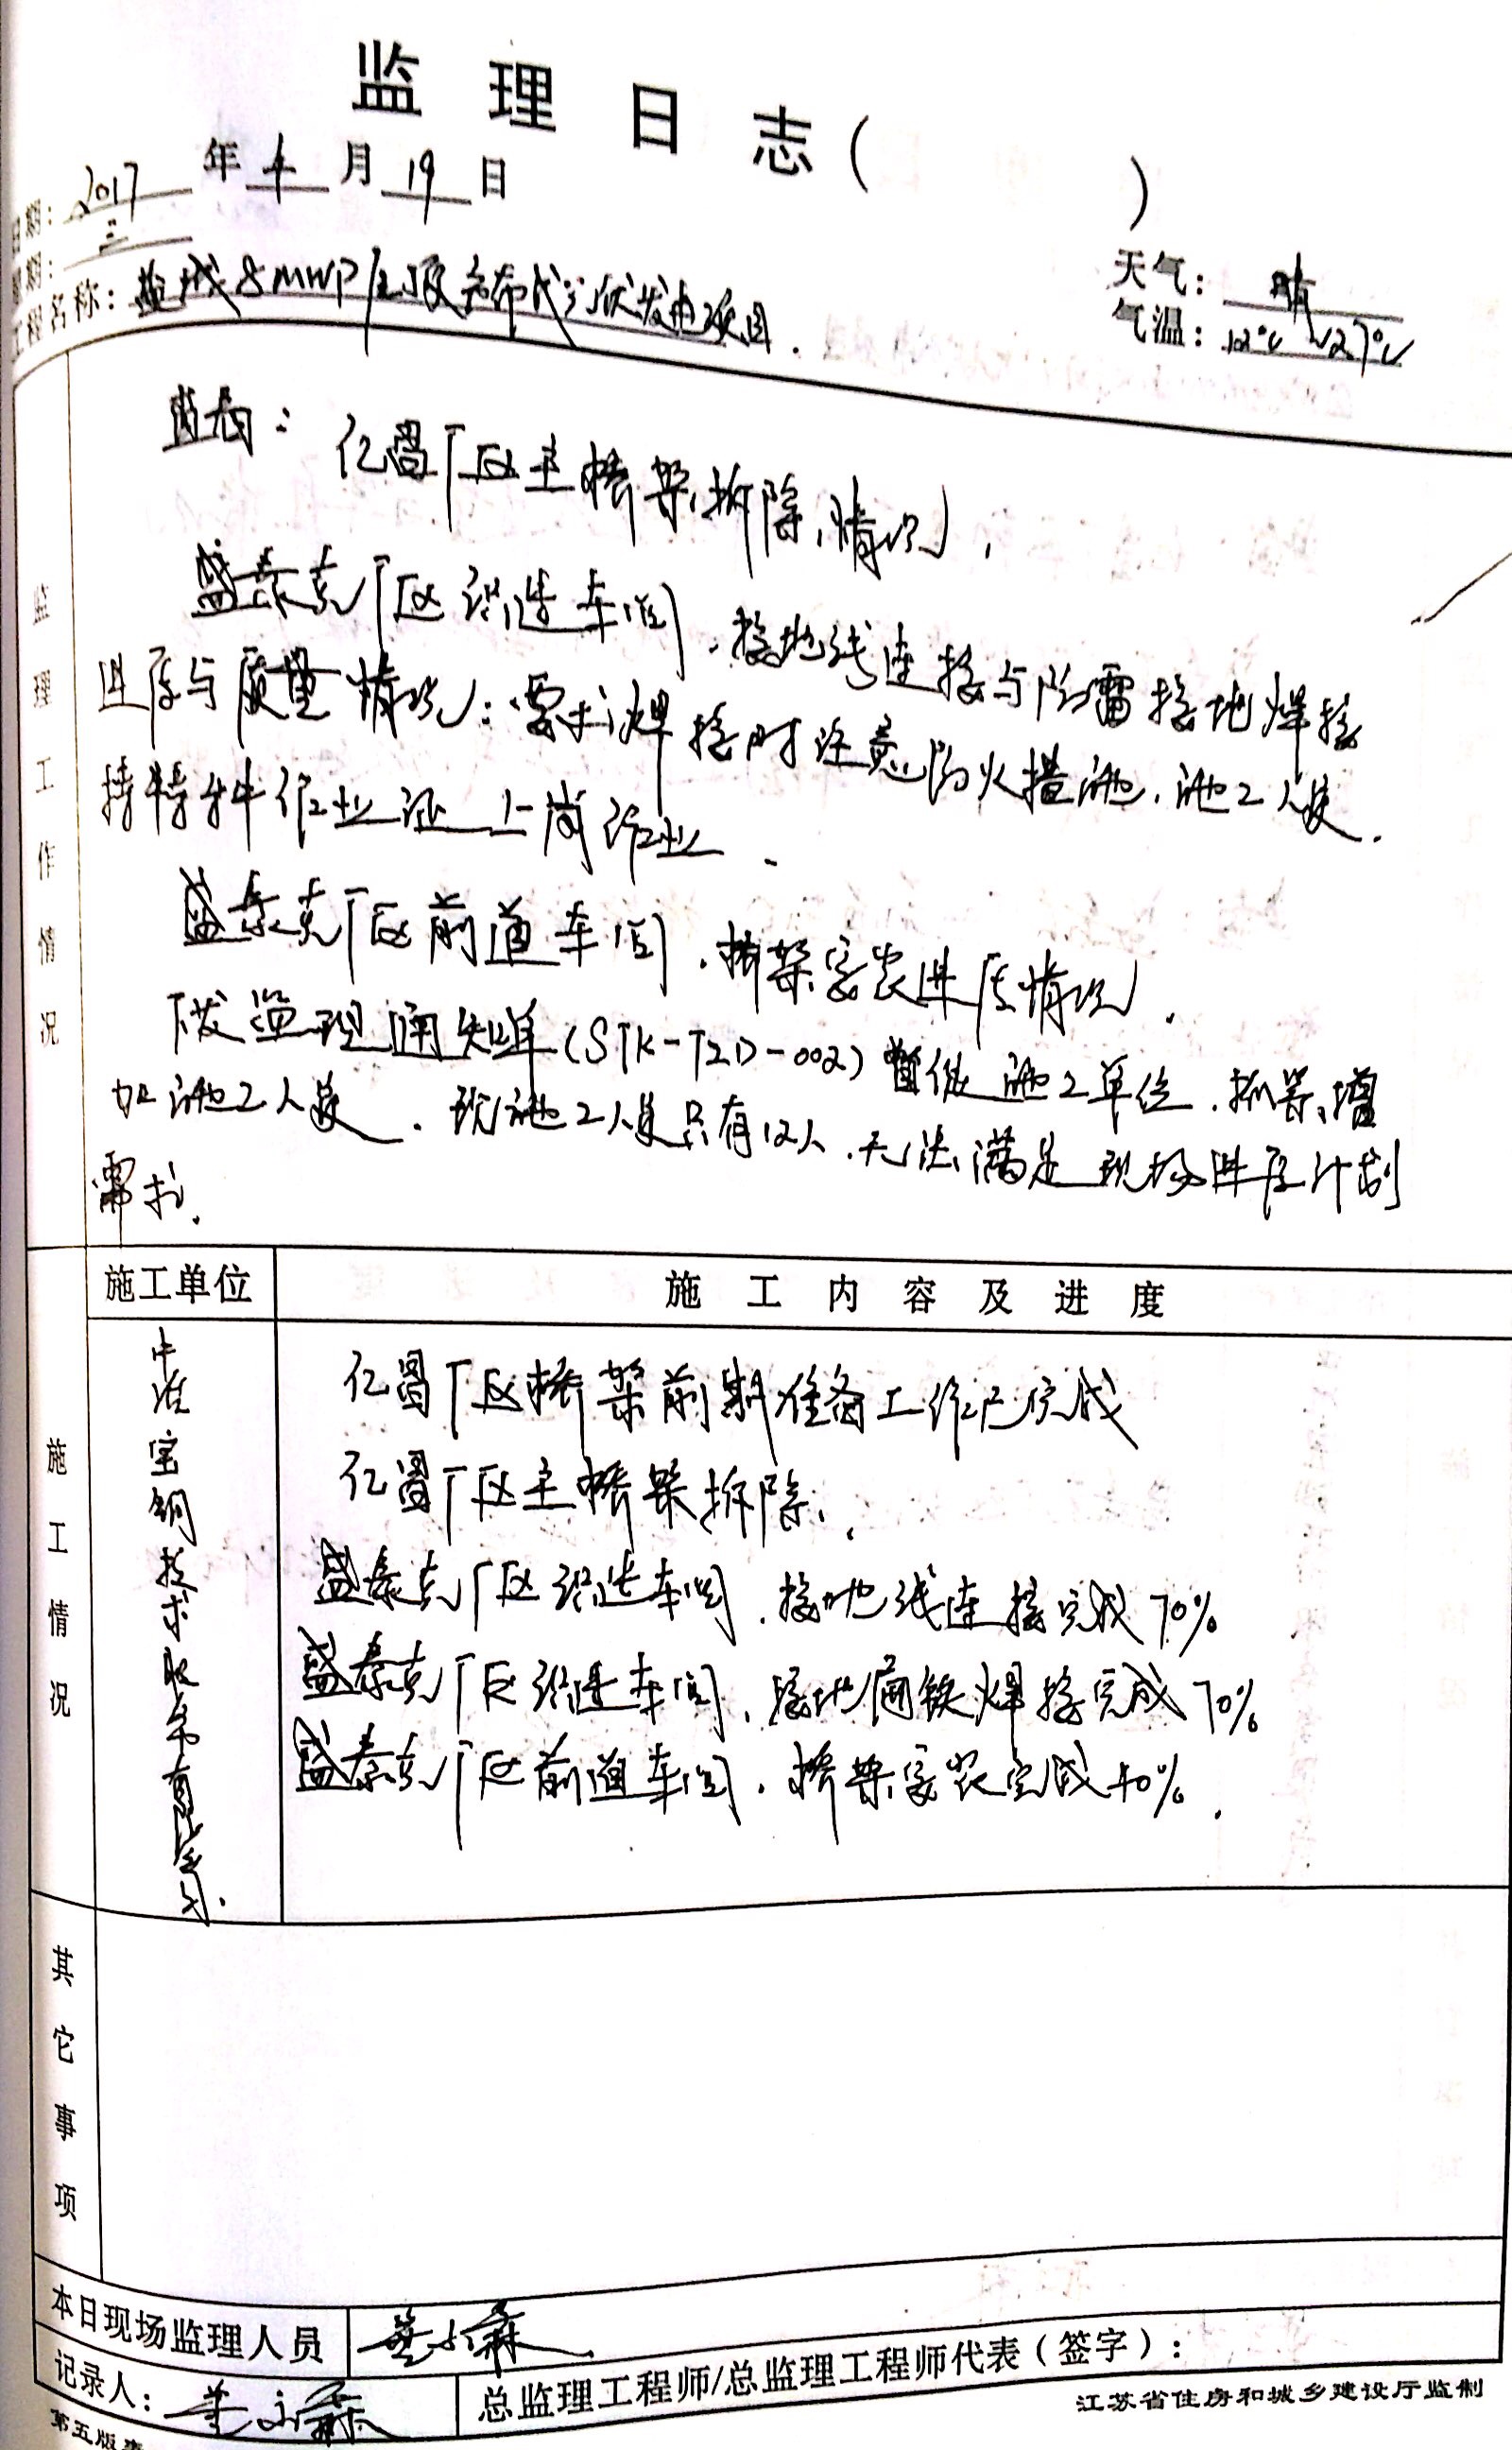 监 理 日 志（ ）
日期：2017 年 4 月 19 日
星期：三
天气：晴
工程名称：盐城8MWP屋顶分布式光伏发电项目．
气温：12℃ ~27℃
监理工作情况
亿昌厂区主桥架拆除情况，
盛泰克厂区锻造车间，接地线连接与防雷接地焊接
进度与质量情况：要求焊接时注意防火措施，施工人员
持特种作业证上岗作业．
盛泰克厂区前道车间，桥架安装进度情况，
下发监理通知单（STK-TZD-002）督促施工单位，抓紧增
加施工人员．现施工人员只有12人，无法满足现场进度计划
需求．
施工单位
施 工 内 容 及 进 度
施工情况
亿昌厂区桥架前期准备工作已完成
亿昌厂区主桥架拆除，
盛泰克厂区锻造车间，接地线连接完成70%
盛泰克厂区锻造车间，接地扁铁焊接完成70%
盛泰克厂区前道车间，桥架安装完成40%．
其它事项
本日现场监理人员
记录人：
总监理工程师/总监理工程师代表（签字）：
第五版
江苏省住房和城乡建设厅监制